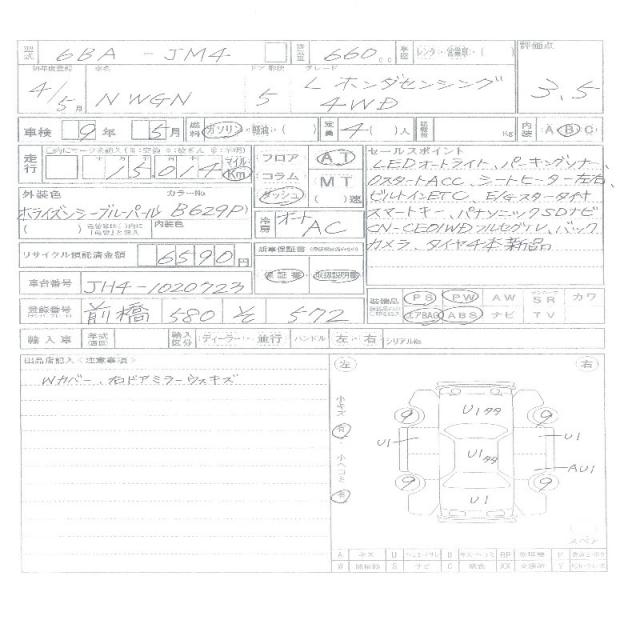 型式 6BA - JM4 排気量 660 cc 車歴 レンタ・営業車・( ) 評価点
初年度登録 車名 ドア 形状 グレード
4/5月 N WGN 5 L ホンダセンシング 4WD 3.5
車検 9年 5月 燃料 ガソリン・軽油・( ) 定員 4-( )人 積載量 Kg 内装 A B C
走行 15,014 マイル Km
フロア コラム ダッシュ
AT MT ( )速
セールスポイント
LEDオートライト、パーキングソナー、
0スタートACC、シートヒーター左右、
ビルトインETC、E/Gスターター付
スマートキー、パナソニックSDナビ
CN-CE01WD フルセグTV、バック
カメラ、タイヤ4本新品
外装色 カラーNo.
ホライズンシーブルーパール B629P
( ) 内装色
冷房 オート AC
リサイクル預託済金額 6590 円
新車保証書
保証書・取扱説明書
車台番号 JH4-1020723
登録番号 前橋 580 を 572
装備品 PS PW AW SR カワ
エアBAG ABS ナビ TV
輸入車 年式 輸入区分 ディーラー・並行 ハンドル 左・右 シリアルNo.
出品店記入〈注意事項〉
Wカバー、右ドアミラーウスキズ
左 右
小キズ 有
小ヘコミ 有
U1 99
9 9
U1 U1
U1 99
AU1
9 9
U1
スペア